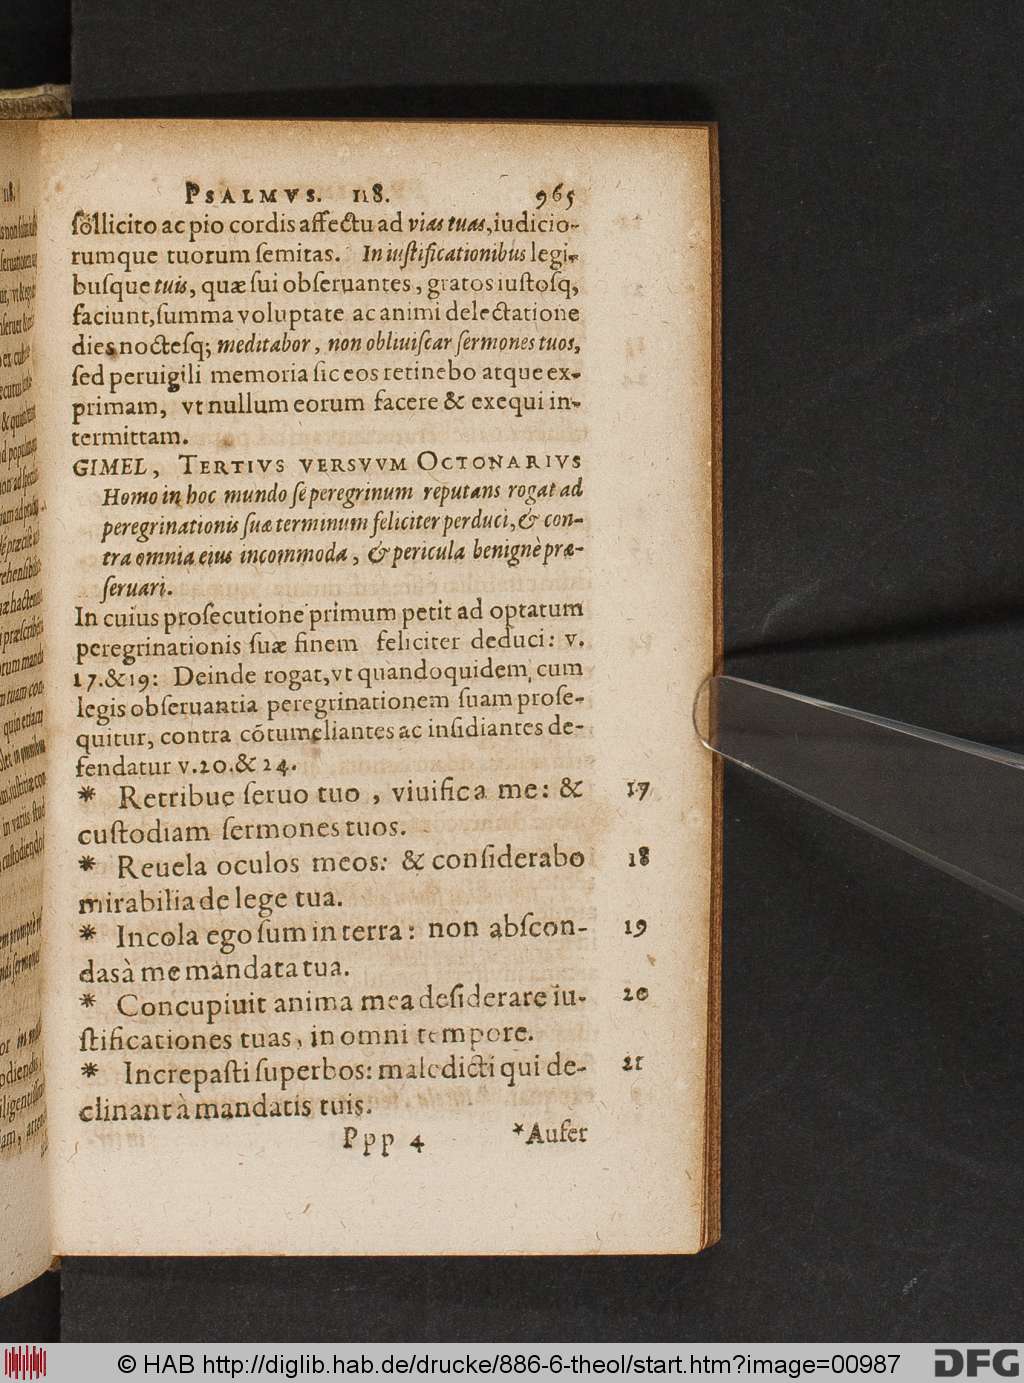 PSALMVS. 118. 965
ſollicito ac pio cordis affectu ad vias tuas, iudicio-
rumque tuorum ſemitas. In iuſtificationibus legi-
buſque tuis, quæ ſui obſeruantes, gratos iuſtoſq;
faciunt, ſumma voluptate ac animi delectatione
dies nocteſq; meditabor, non obliuiſcar ſermones tuos,
ſed peruigili memoria ſic eos retinebo atque ex-
primam, vt nullum eorum facere & exequi in-
termittam.
GIMEL, TERTIVS VERSVVM OCTONARIVS
Homo in hoc mundo ſe peregrinum reputans rogat ad
peregrinationis ſuæ terminum feliciter perduci, & con-
tra omnia eius incommoda, & pericula benignè præ-
ſeruari.
In cuius proſecutione primum petit ad optatum
peregrinationis ſuæ finem feliciter deduci: v.
17.&19: Deinde rogat, vt quandoquidem, cum
legis obſeruantia peregrinationem ſuam proſe-
quitur, contra cõtumeliantes ac inſidiantes de-
fendatur v.20.& 24.
* Retribue ſeruo tuo , viuifica me: & 17
cuſtodiam ſermones tuos.
* Reuela oculos meos: & conſiderabo 18
mirabilia de lege tua.
* Incola ego ſum in terra: non abſcon- 19
das à me mandata tua.
* Concupiuit anima mea deſiderare iu- 20
ſtificationes tuas, in omni tempore.
* Increpaſti ſuperbos: maledicti qui de- 21
clinant à mandatis tuis.
Ppp 4 *Aufer
© HAB http://diglib.hab.de/drucke/886-6-theol/start.htm?image=00987 DFG